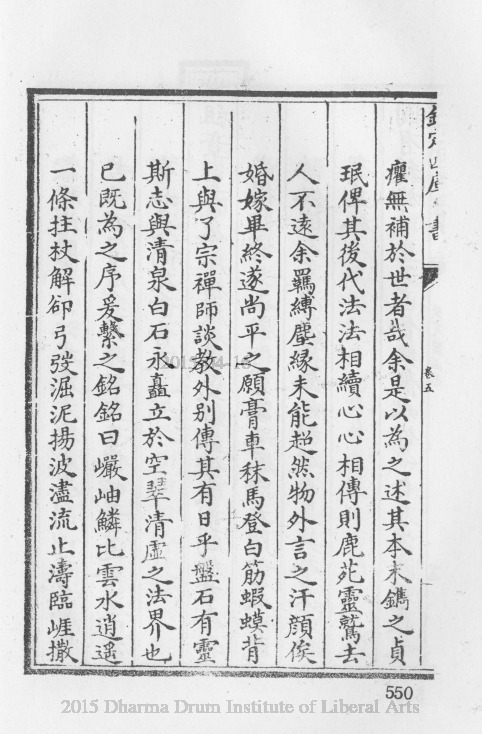 欽定四庫全書
卷五
癯無補於世者哉余是以為之述其本末鐫之貞
珉俾其後代法法相續心心相傳則鹿苑靈鷲去
人不遠余羈縛塵緣未能超然物外言之汗顔俟
婚嫁畢終遂尚平之願膏車秣馬登白筋蝦蟆背
上與了宗禪師談教外别傳其有日乎盤石有靈
斯志與清泉白石永矗立於空翠清虛之法界也
已既為之序爰繫之銘銘曰巗岫鱗比雲水逍遥
一條拄杖解卻弓弢淈泥揚波濜流止濤臨崕撒
550
2015 Dharma Drum Institute of Liberal Arts